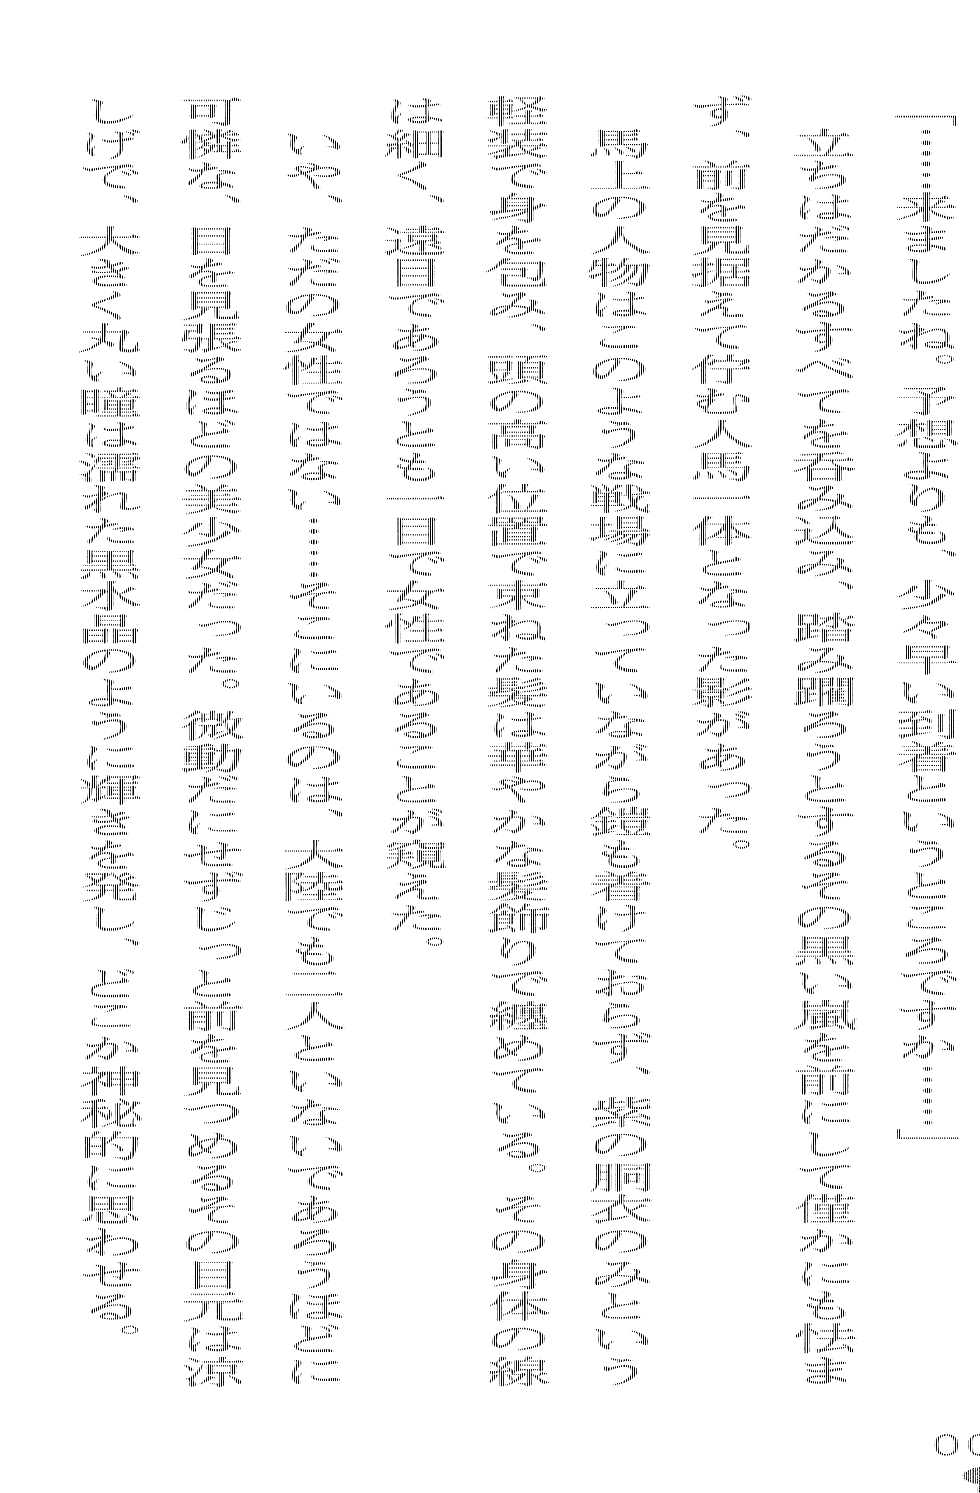 「……来ましたね。予想よりも、少々早い到着というところですか……」
立ちはだかるすべてを呑み込み、踏み躙ろうとするその黒い嵐を前にして僅かにも怯ま
ず、前を見据えて佇む人馬一体となった影があった。
馬上の人物はこのような戦場に立っていながら鎧も着けておらず、紫の胴衣のみという
軽装で身を包み、頭の高い位置で束ねた髪は華やかな髪飾りで纏めている。その身体の線
は細く、遠目であろうとも一目で女性であることが窺えた。
いや、ただの女性ではない……そこにいるのは、大陸でも二人といないであろうほどに
可憐な、目を見張るほどの美少女だった。微動だにせずじっと前を見つめるその目元は涼
しげで、大きく丸い瞳は濡れた黒水晶のように輝きを発し、どこか神秘的に思わせる。